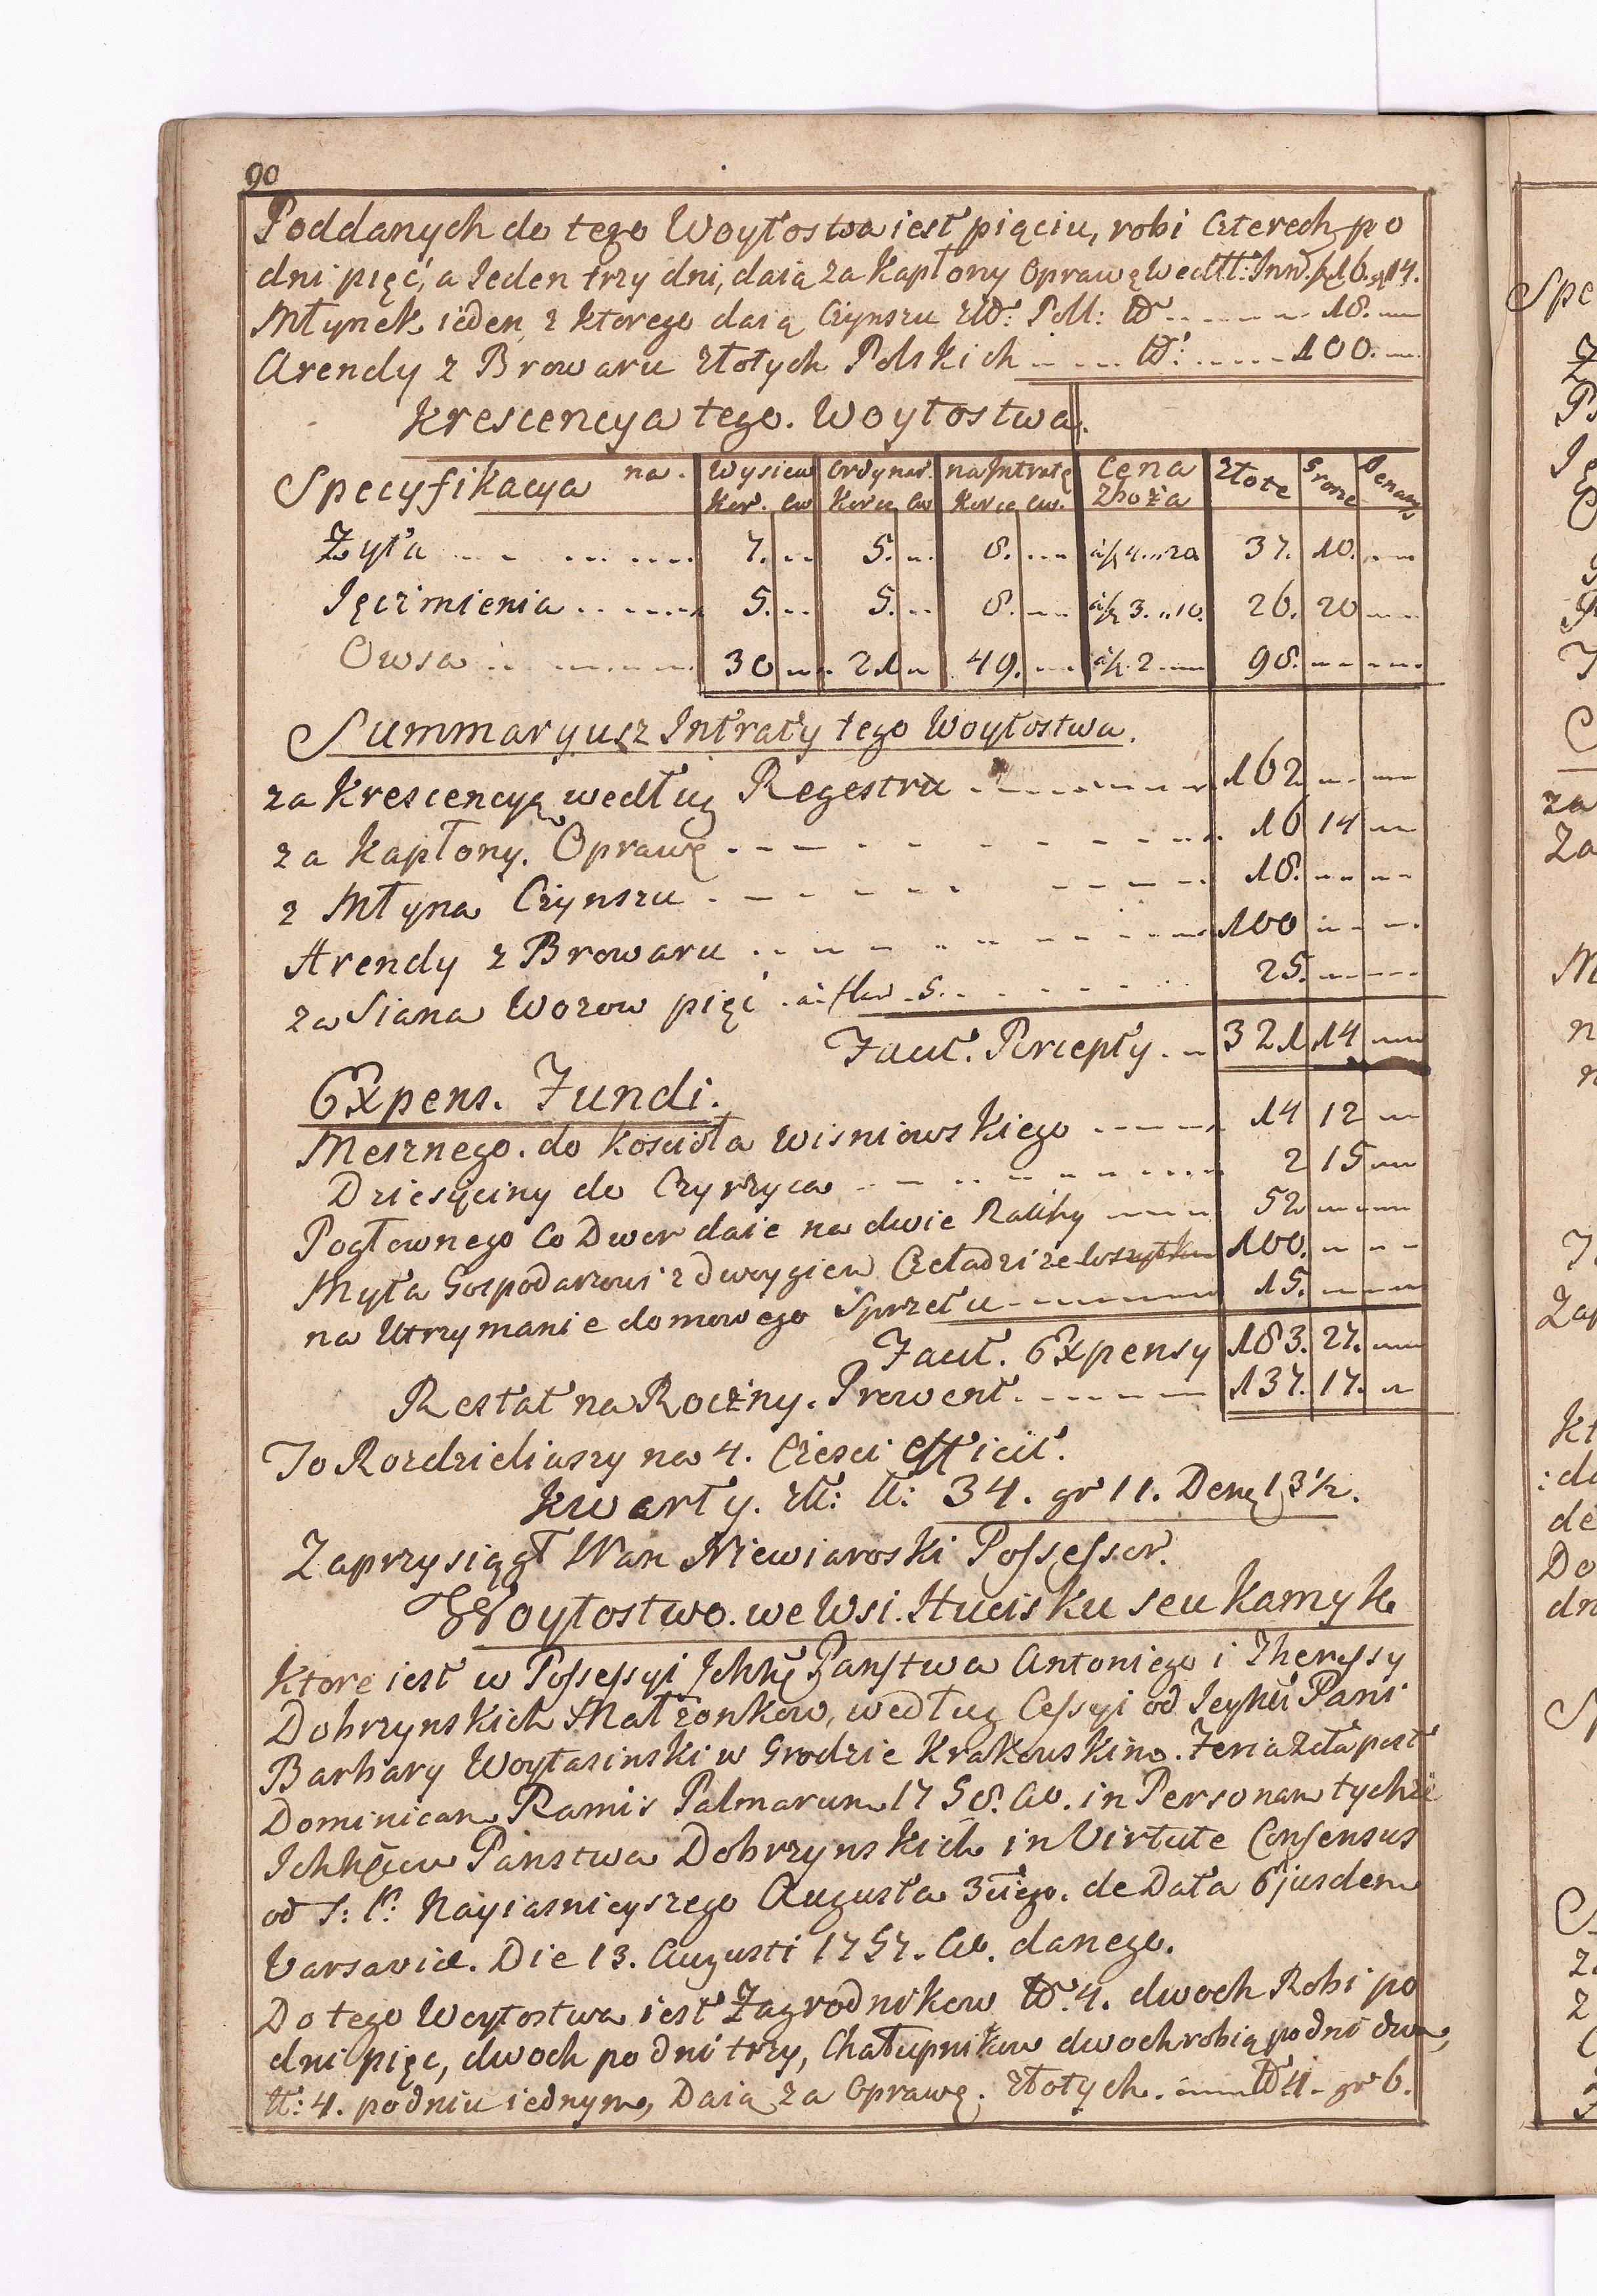 90
Poddanych do tego Woytostwa iest pięciu, robi Czterech po
dni pięć, a Ieden trzy dni, daią za Kapłony Oprawę wedłł: Inw. fl 16. gr 14.
Młynek ieden z ktorego daią Czynszu złł: Poll: N° ... 18. —
Arendy z Browaru złotych Polskich ... N°: ... 100. —
Krescencya tego. Woytostwa.
Specyfikacya na. | Wysiew Kor. Cw | Ordynar. Korcy Cw | na Intratę Korcy Cw. | Cena Zboża | Złote | Grosze | Denary
Żyta ... 7. — 5. — 8. — à fl 4. .. 20 37. 10. —
Ięczmienia ... 5. — 5. — 8. — à fl 3. .. 10. 26. 20 —
Owsa ... 30 — 21 — 49. — à fl. 2 — 98. — —
Summaryusz Intraty tego Woytostwa.
za Krescencyą według Regestru ... 162 — —
za Kapłony. Oprawę ... 16 14 —
z Młyna Czynszu ... 18. — —
Arendy z Browaru ... 100 — —
za Siana Wozow pięć . à flor . 5. ... 25. — —
Facit. Percepty. — 321 14 —
Expens. Fundi.
Mesznego. do Kościoła Wisniowskiego ... 14 12 —
Dziesięciny do Czyrzyca ... 2 15 —
Pogłownego Co Dwor daie na dwie Ratthy ... 52 — —
Myta Gospodarzowi z dwoygiem Czeladzi ze wszytkim 100. — —
na Utrzymanie domowego Sprzetu ... 15. — —
Facit. Expensy 183. 27. —
Restat na Roczny. Prowent. ... 137. 17. —
To Rozdzieliwszy na 4. Czesci efficit.
Kwarty. złł: N: 34. gr 11. Den 13 1/2.
Zaprzysiągł Wan Niewiaroski Possessor.
Woytostwo. we Wsi. Hucisku seu Kamyk
Ktore iest w Possessyi Ichhę Panstwa Antoniego i Theressy
Dobrzynskich Małżonkow, według Cessyi od Ieyhći Pani
Barbary Woytasinski w Grodzie Krakowskim. Feria 2da post
Dominicam Ramis Palmarum 1758. Ao. in Personam tychże
Ichhęiow Panstwa Dobrzynskich in Virtute Consensus
od S: P: Nayiasnieyszego Augusta 3ciego. de Data Ejusdem
Varsaviæ. Die 13. Augusti 1757. Ao. danego.
Do tego Woytostwa iest Zagrodnikow N°. 4. dwoch Robi po
dni pięc, dwoch po dni trzy, Chałupnikow dwoch robią po dni dwa,
N: 4. po dniu iednym, Daią za Oprawę. złotych. ... N° 4 - gr 6.